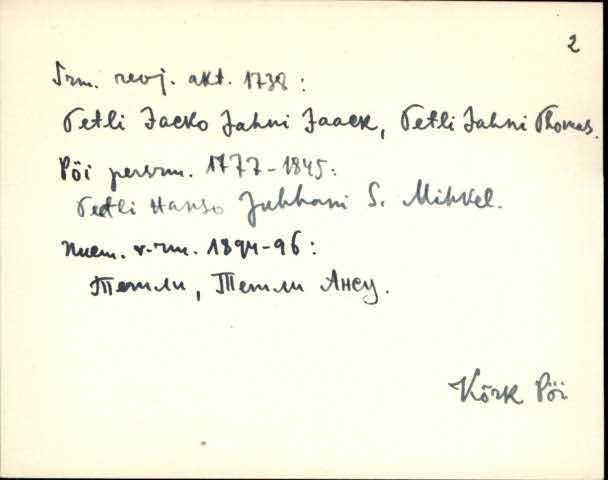 2
Srm. revj. akt. 1738:
Tetli Jacko Jahni Jaack, Tetli Jahni Thomas.
Pöi persrm. 1777-1845:
Tetli Hanso Juhhani S. Mihkel.
1894-96:
Тетли, Тетли Ансу.
Kõrk Pöi